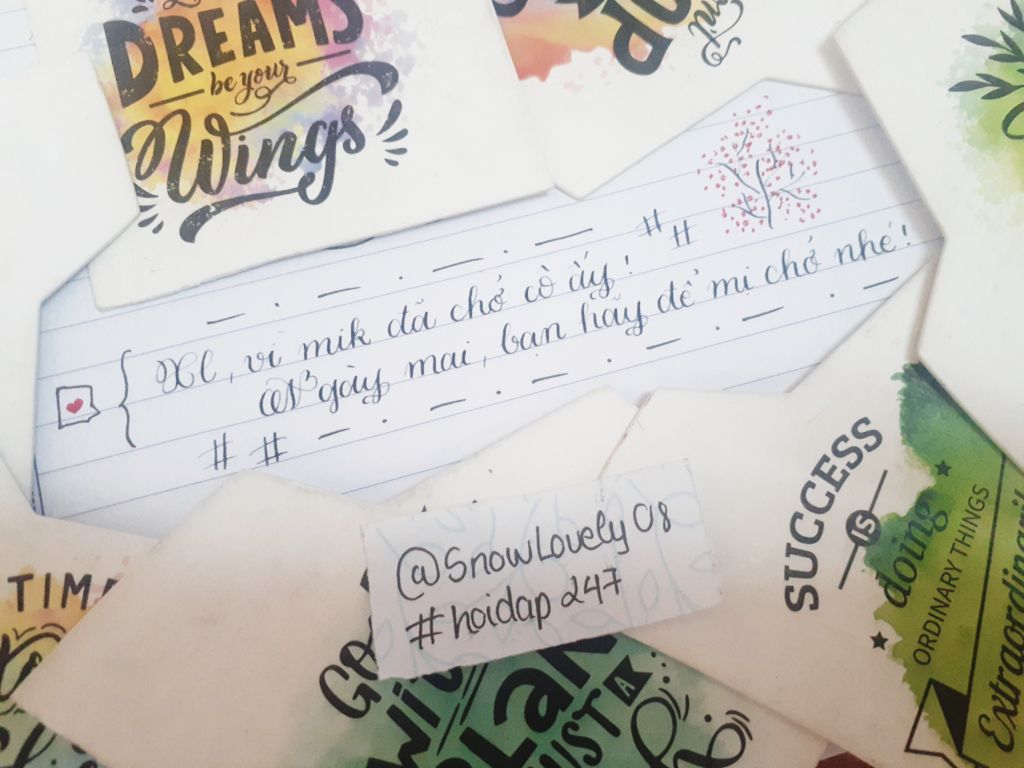 DREAMS
be your
Wings
# #
Xl, vì mik đã chở cô ấy!
Ngày mai, bạn hãy để mị chở nhé!
# #
@SnowLovely08
#hoidap247
SUCCESS
IS
doing
ORDINARY THINGS